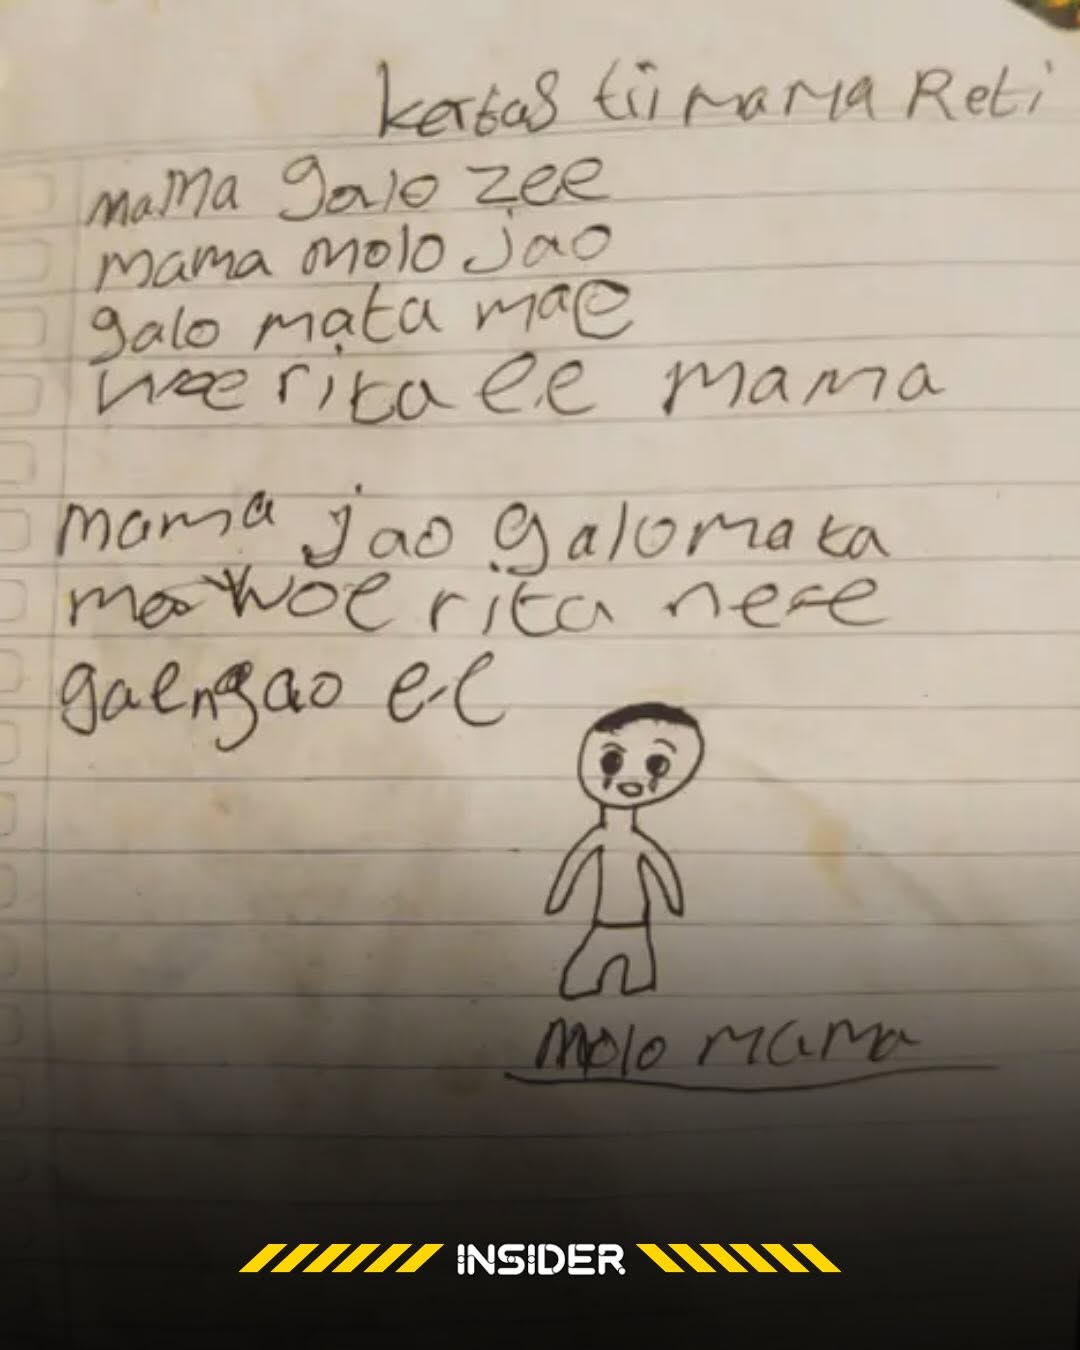 kertas tii mama Reti
mama galo zee
mama molo jao
galo mata mae
woe rita ee mama
mama jao galo mata
mae woe rita nee
gaengao ee
molo mama
INSIDER